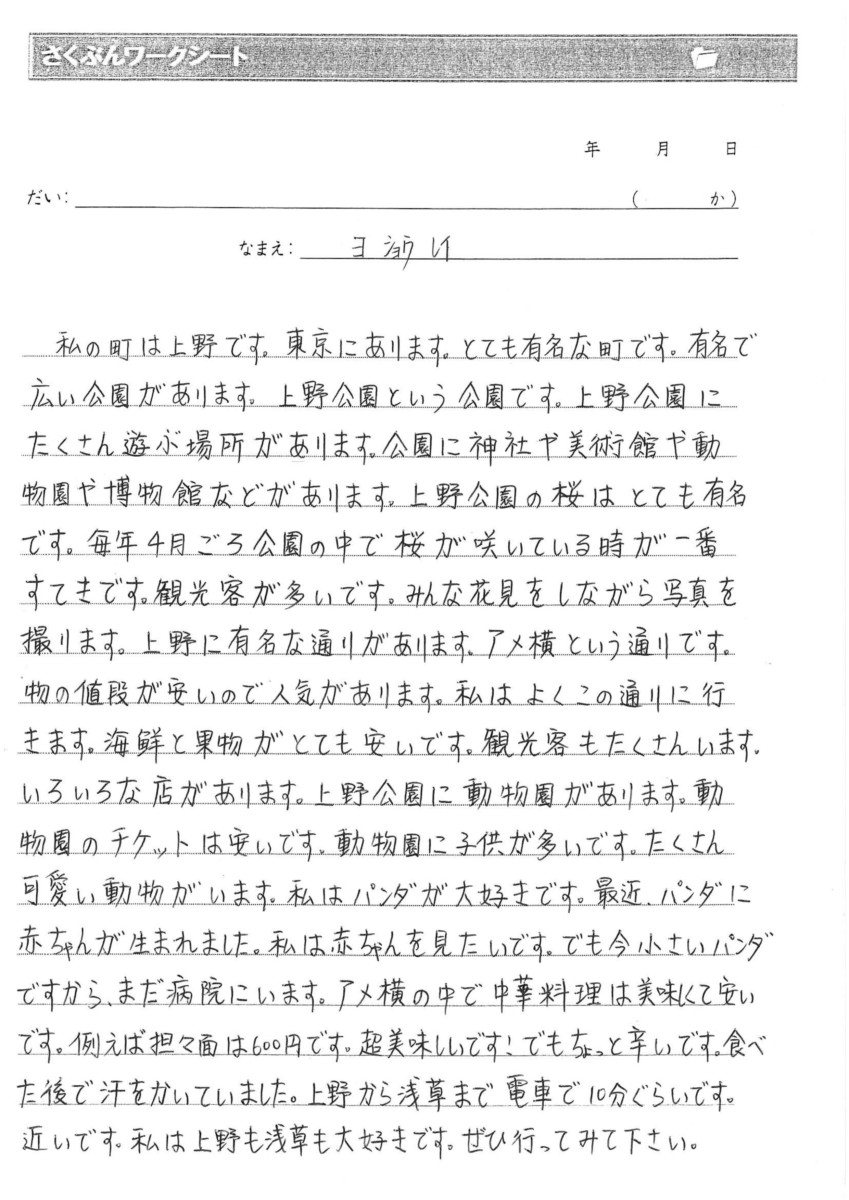 さくぶんワークシート
年 月 日
だい： ( か)
なまえ： ヨ ショウ レイ
私の町は上野です。東京にあります。とても有名な町です。有名で
広い公園があります。上野公園という公園です。上野公園に
たくさん遊ぶ場所があります。公園に神社や美術館や動
物園や博物館などがあります。上野公園の桜はとても有名
です。毎年4月ごろ公園の中で桜が咲いている時が一番
すてきです。観光客が多いです。みんな花見をしながら写真を
撮ります。上野に有名な通りがあります。アメ横という通りです。
物の値段が安いので人気があります。私はよくこの通りに行
きます。海鮮と果物がとても安いです。観光客もたくさんいます。
いろいろな店があります。上野公園に動物園があります。動
物園のチケットは安いです。動物園に子供が多いです。たくさん
可愛い動物がいます。私はパンダが大好きです。最近、パンダに
赤ちゃんが生まれました。私は赤ちゃんを見たいです。でも今小さいパンダ
ですから、まだ病院にいます。アメ横の中で中華料理は美味しくて安い
です。例えば担々面は600円です。超美味しいです！でもちょっと辛いです。食べ
た後で汗をかいていました。上野から浅草まで電車で10分ぐらいです。
近いです。私は上野も浅草も大好きです。ぜひ行ってみて下さい。